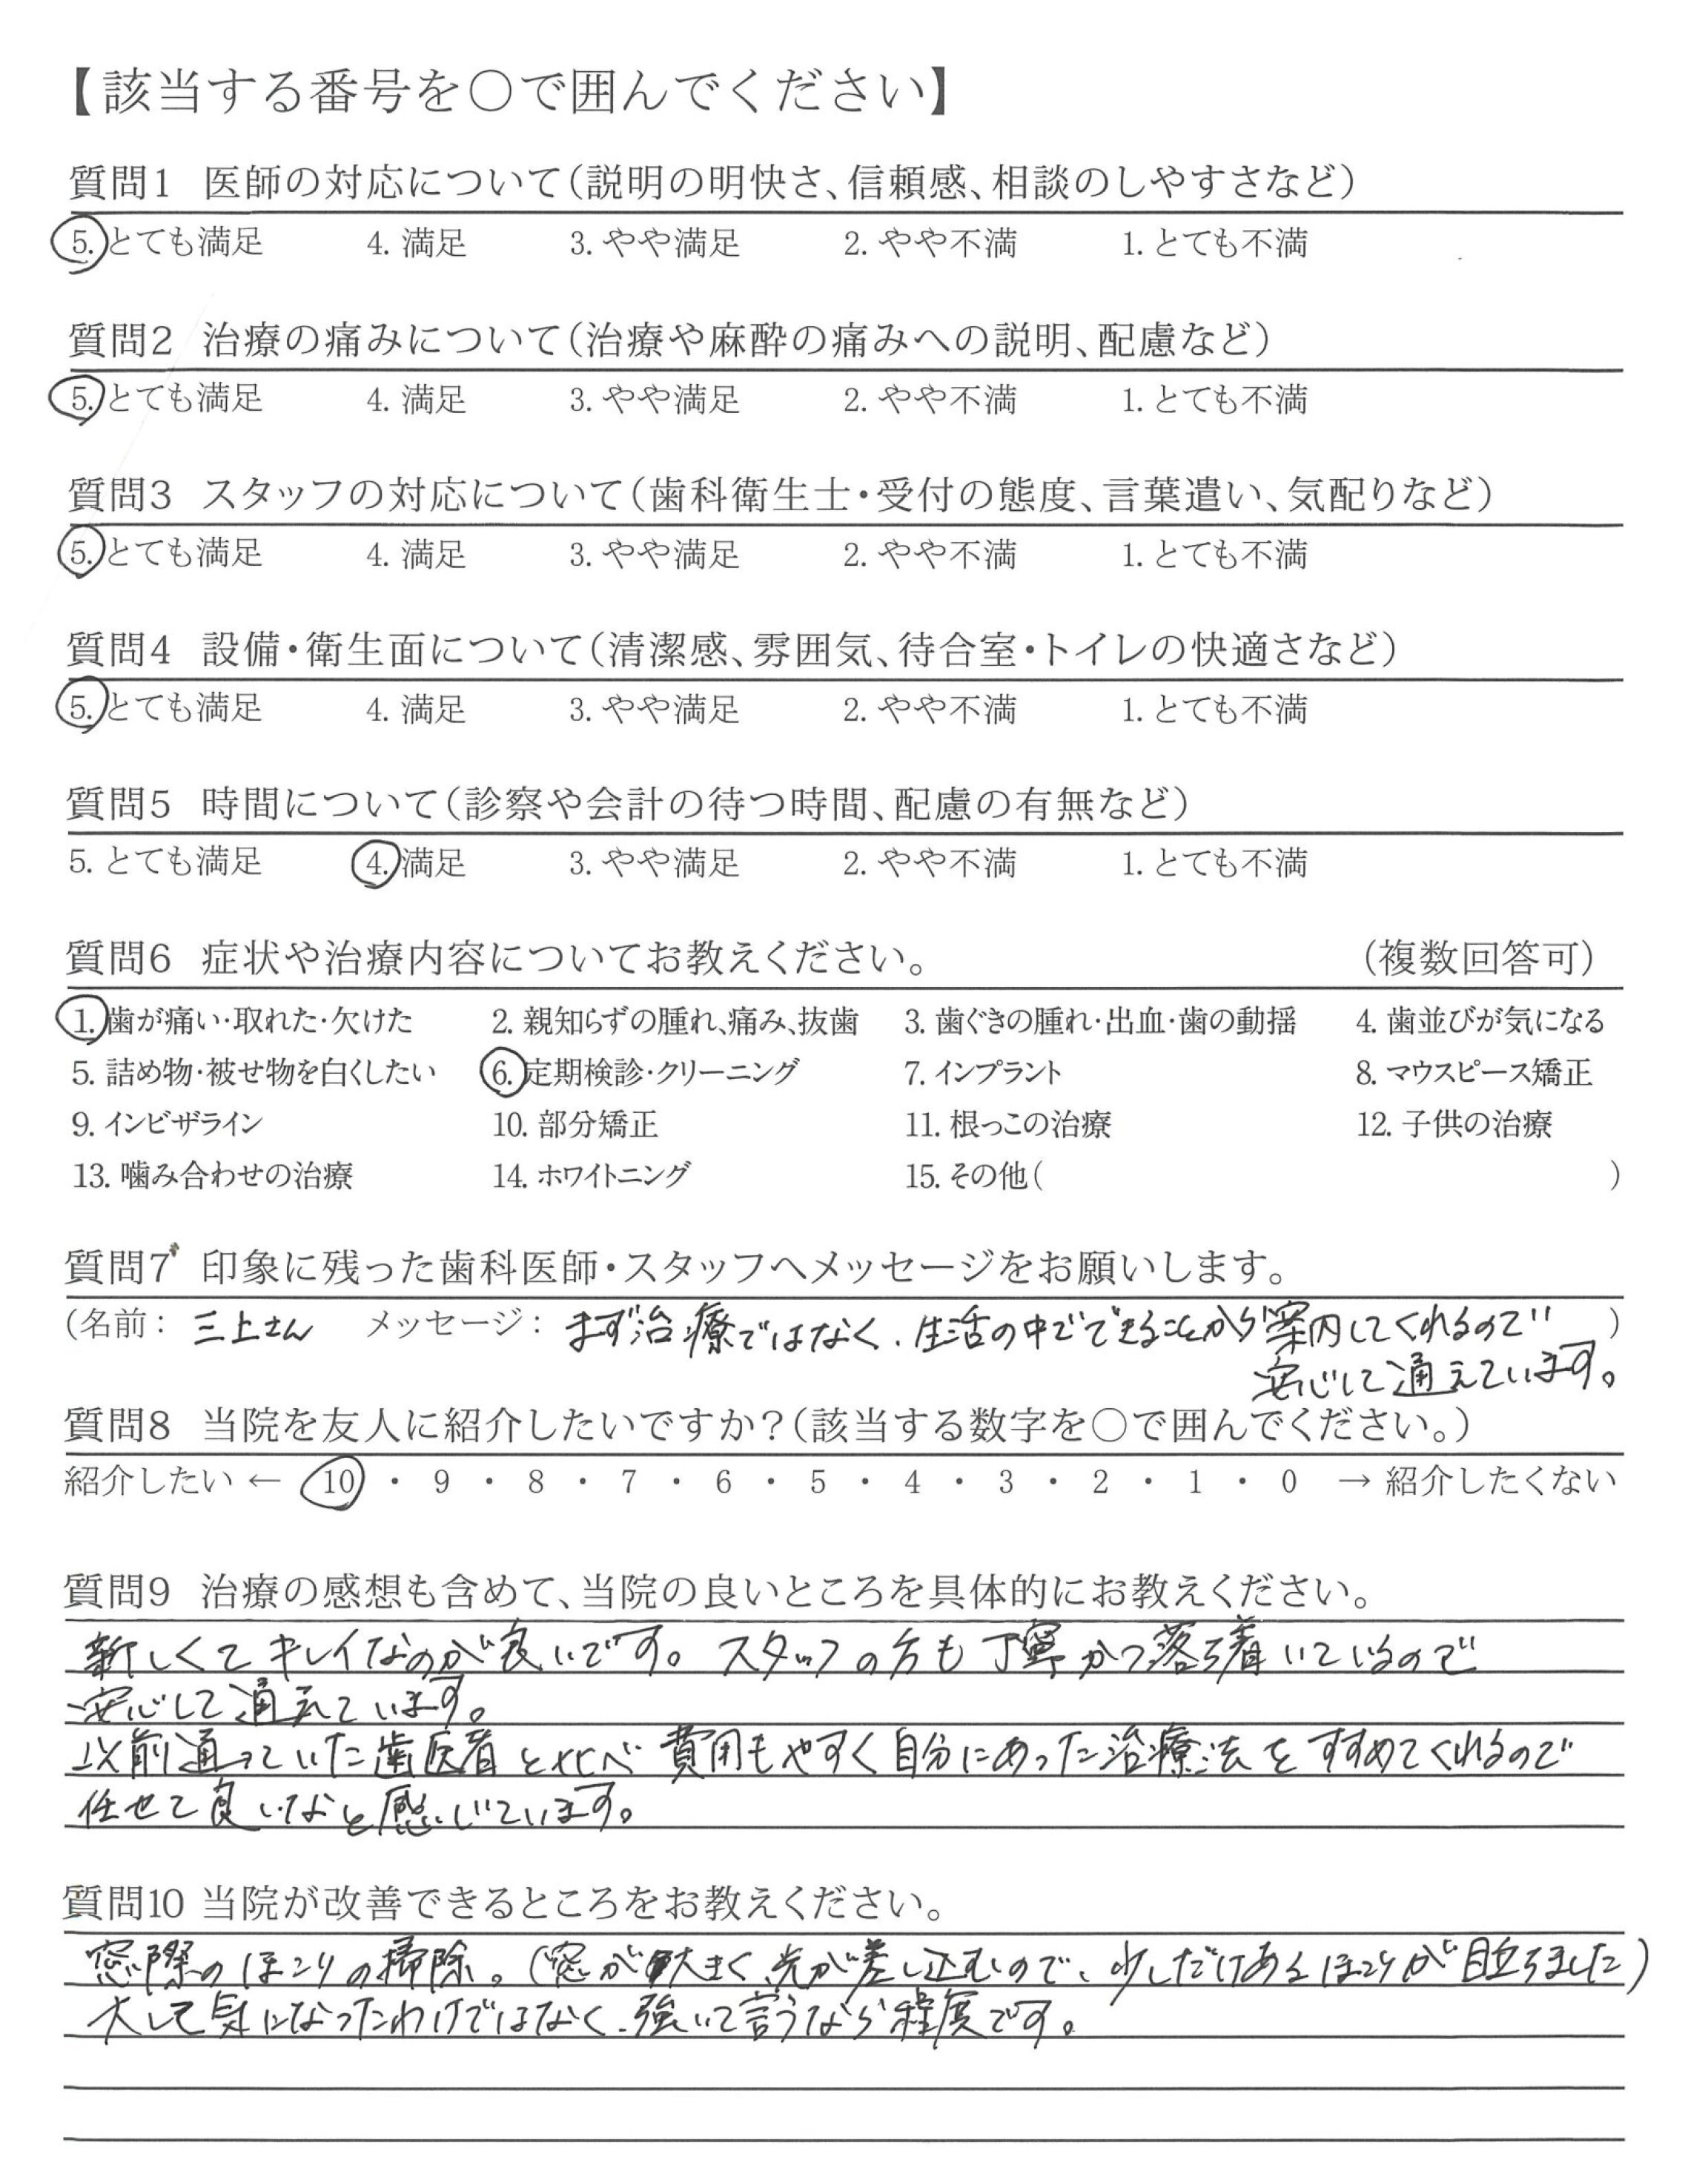 【該当する番号を〇で囲んでください】
質問1 医師の対応について（説明の明快さ、信頼感、相談のしやすさなど）
5. とても満足 4. 満足 3. やや満足 2. やや不満 1. とても不満
質問2 治療の痛みについて（治療や麻酔の痛みへの説明、配慮など）
5. とても満足 4. 満足 3. やや満足 2. やや不満 1. とても不満
質問3 スタッフの対応について（歯科衛生士・受付の態度、言葉遣い、気配りなど）
5. とても満足 4. 満足 3. やや満足 2. やや不満 1. とても不満
質問4 設備・衛生面について（清潔感、雰囲気、待合室・トイレの快適さなど）
5. とても満足 4. 満足 3. やや満足 2. やや不満 1. とても不満
質問5 時間について（診察や会計の待つ時間、配慮の有無など）
5. とても満足 4. 満足 3. やや満足 2. やや不満 1. とても不満
質問6 症状や治療内容についてお教えください。 （複数回答可）
1. 歯が痛い・取れた・欠けた 2. 親知らずの腫れ、痛み、抜歯 3. 歯ぐきの腫れ・出血・歯の動揺 4. 歯並びが気になる
5. 詰め物・被せ物を白くしたい 6. 定期検診・クリーニング 7. インプラント 8. マウスピース矯正
9. インビザライン 10. 部分矯正 11. 根っこの治療 12. 子供の治療
13. 噛み合わせの治療 14. ホワイトニング 15. その他（ ）
質問7 印象に残った歯科医師・スタッフへメッセージをお願いします。
（名前： 三上さん メッセージ： まず治療ではなく、生活の中でできることから案内してくれるので ）
安心して通えています。
質問8 当院を友人に紹介したいですか？（該当する数字を〇で囲んでください。）
紹介したい ← 10 ・ 9 ・ 8 ・ 7 ・ 6 ・ 5 ・ 4 ・ 3 ・ 2 ・ 1 ・ 0 → 紹介したくない
質問9 治療の感想も含めて、当院の良いところを具体的にお教えください。
新しくてキレイなのが良いです。スタッフの方も丁寧かつ落ち着いているので
安心して通えています。
以前通っていた歯医者と比べ費用もやすく自分にあった治療法をすすめてくれるので
任せて良いなと感じています。
質問10 当院が改善できるところをお教えください。
窓際のほこりの掃除。（窓が大きく光が差し込むので、少しだけあるほこりが目立ちました）
大して気になったわけではなく、強いて言うなら程度です。